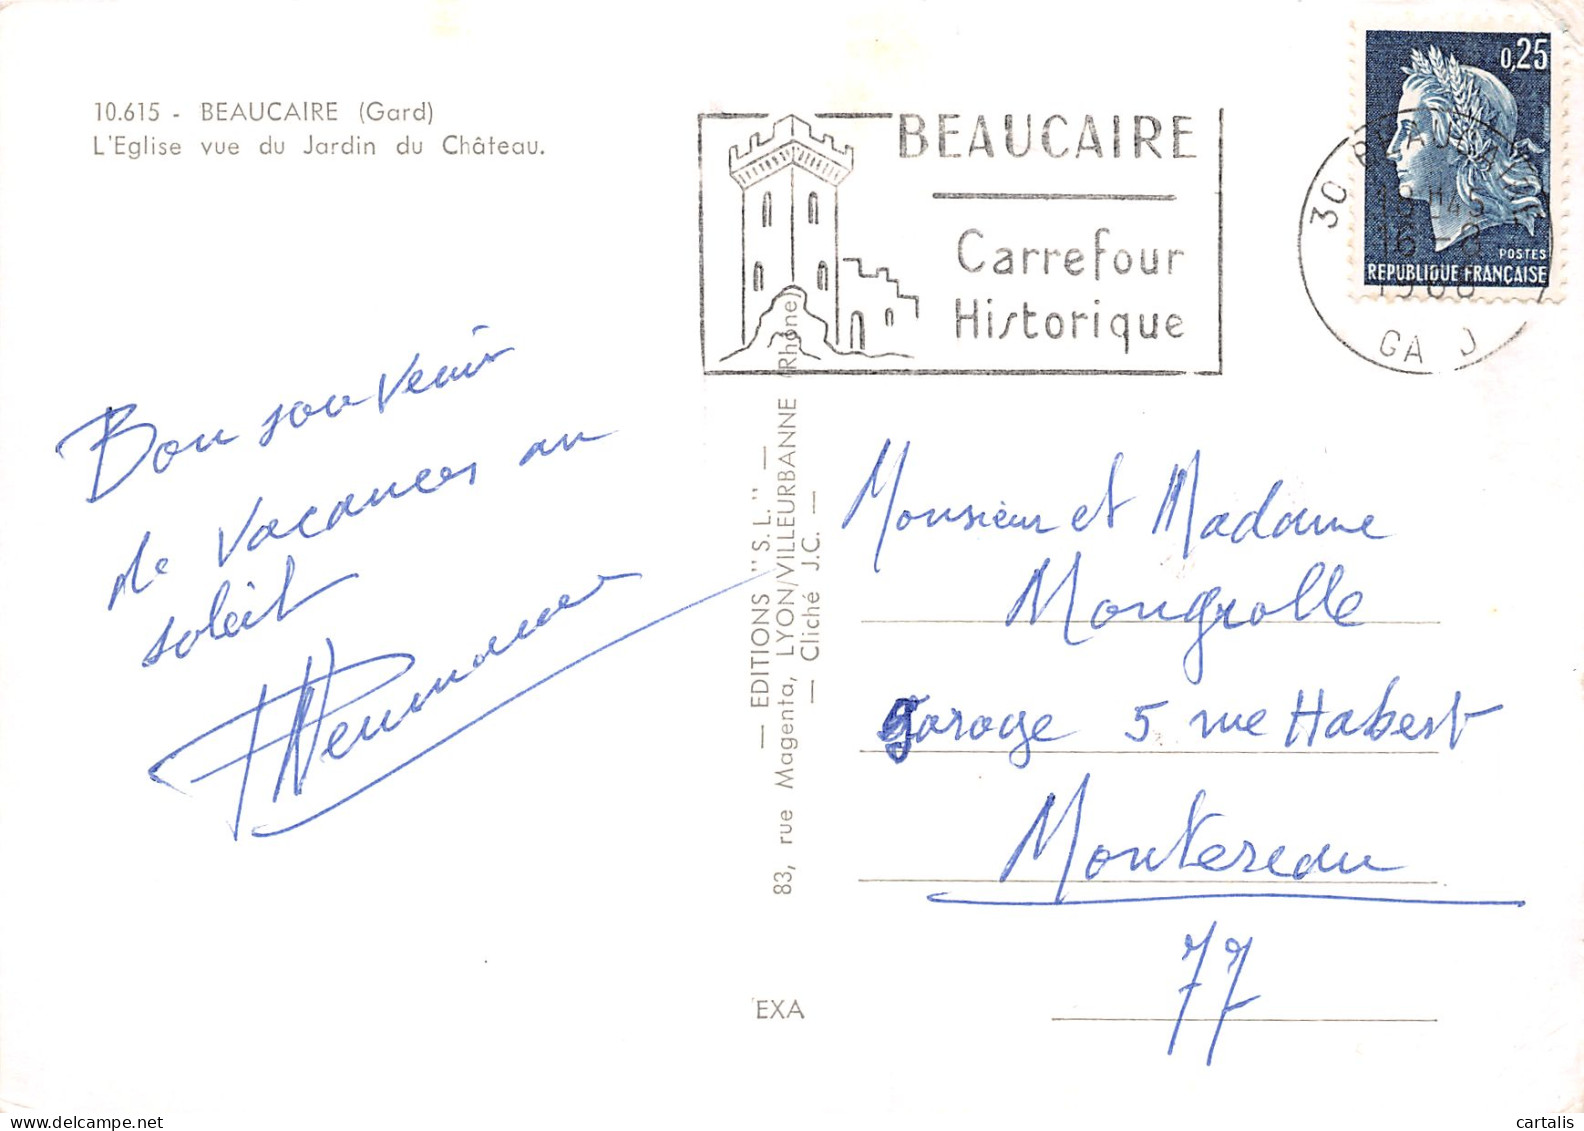 10.615 - BEAUCAIRE (Gard)
L'Eglise vue du Jardin du Château.
BEAUCAIRE
Carrefour
Historique
0,25
POSTES
REPUBLIQUE FRANÇAISE
30 BEAUCAIRE
18H45
16-8
1968
GARD
Bon souvenir
de vacances au
soleil
— EDITIONS "S.L." —
83, rue Magenta, LYON/VILLEURBANNE (Rhône)
— Cliché J.C. —
EXA
Monsieur et Madame
Mongrolle
Garage 5 rue Habert
Montereau
77
cartalis
delcampe.net